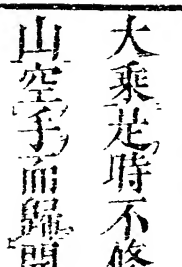 大乘是時不修
山空手而歸開